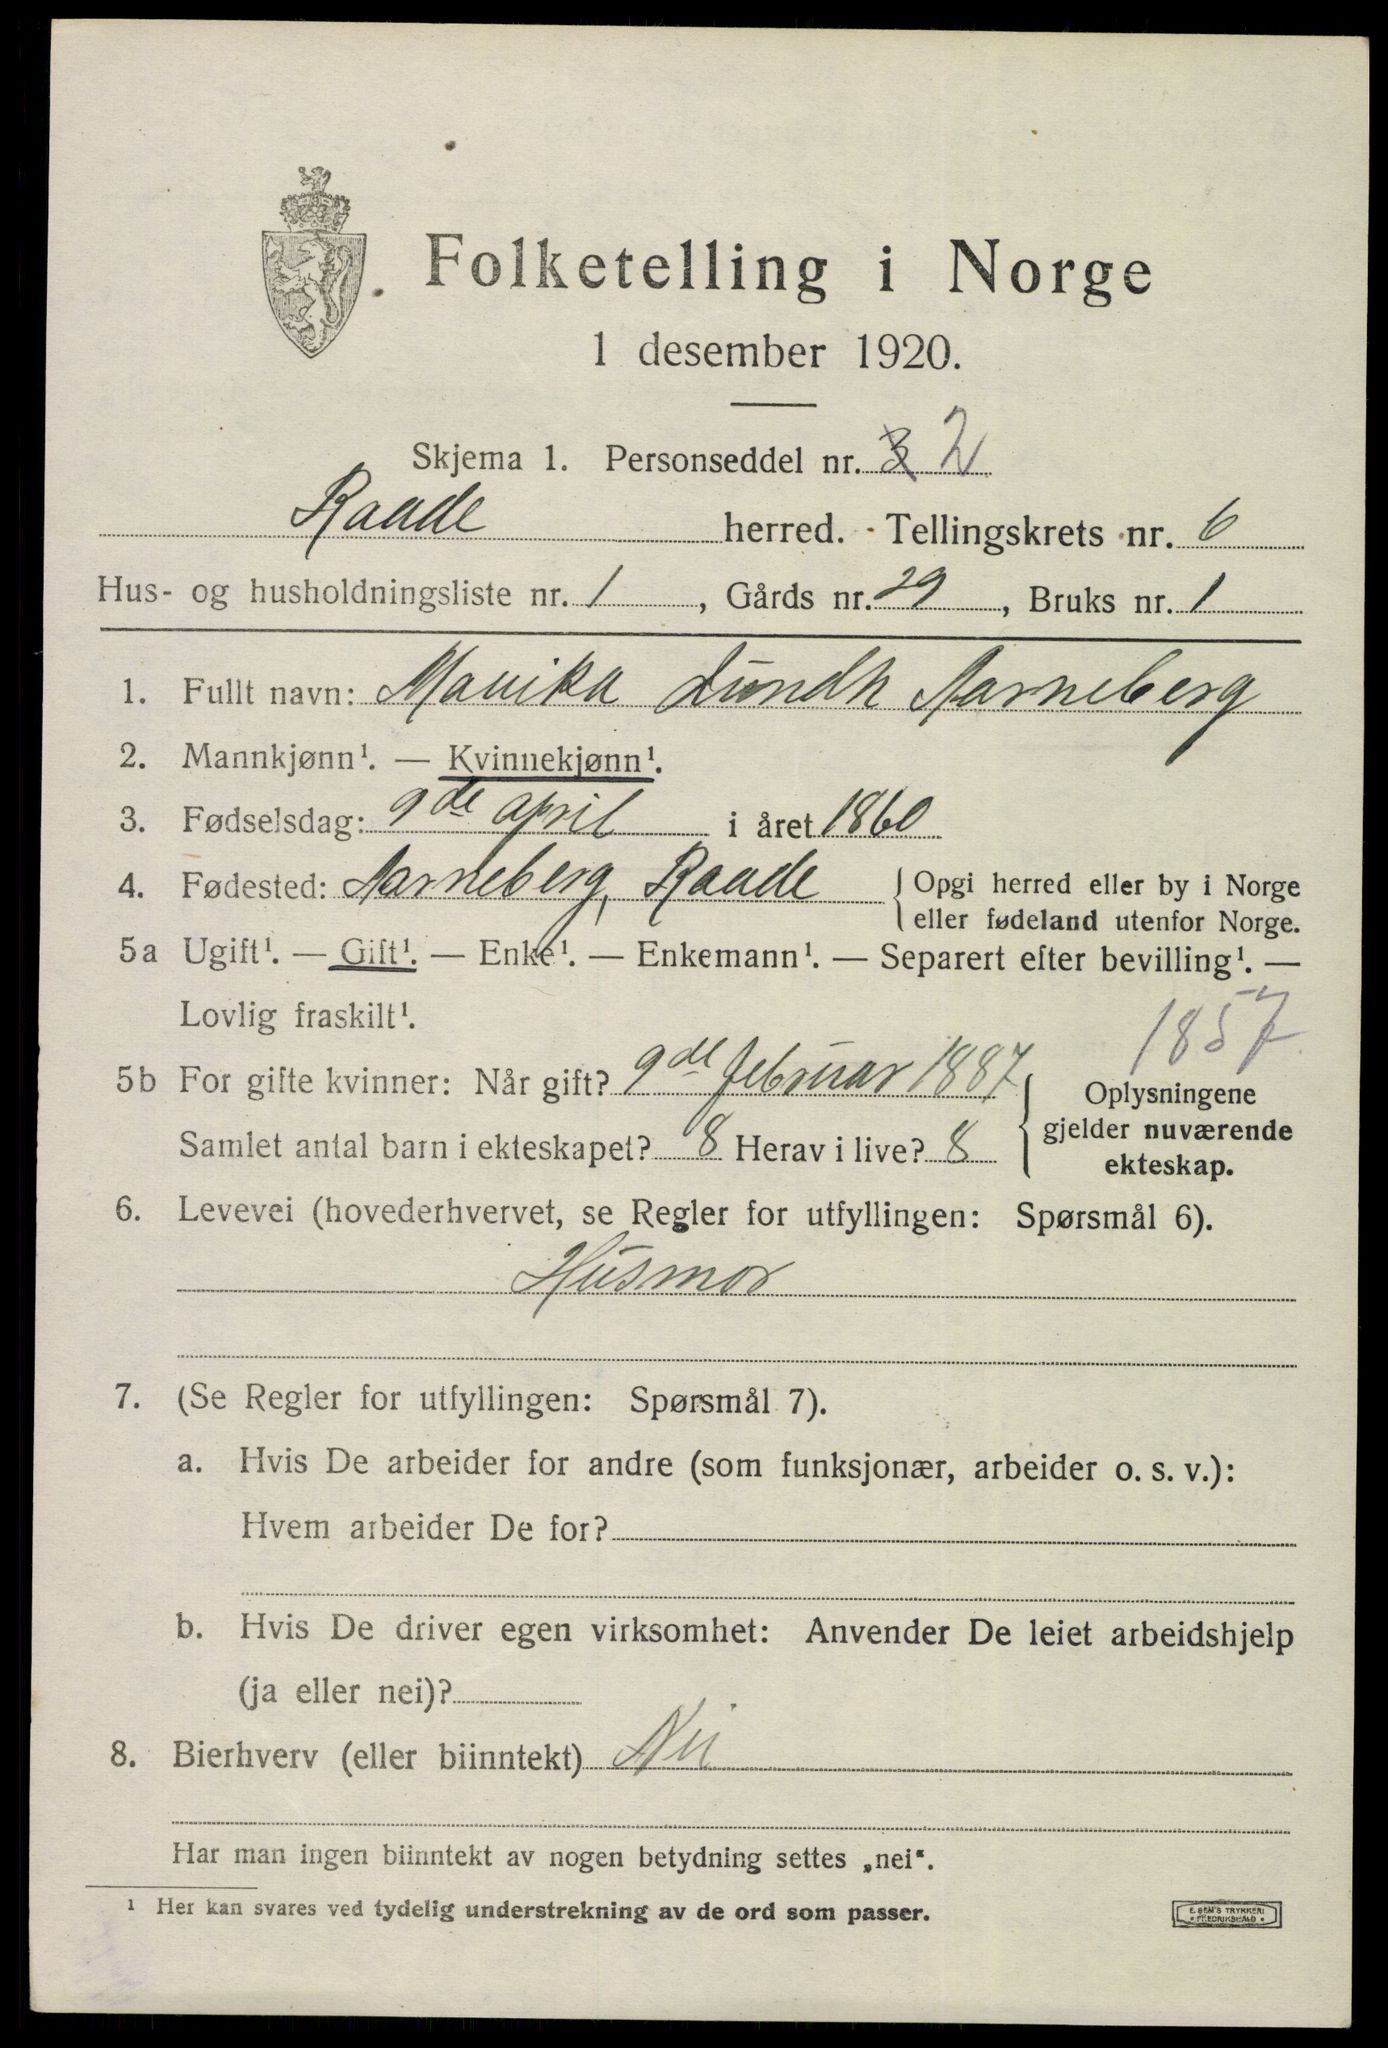 Folketelling i Norge
1 desember 1920.
Skjema 1. Personseddel nr. 3 2
Raade herred. Tellingskrets nr. 6
Hus- og husholdningsliste nr. 1, Gårds nr. 29, Bruks nr. 1
1. Fullt navn: Marika Lundh Aarneberg
2. Mannkjønn¹. — Kvinnekjønn¹.
3. Fødselsdag: 9de april i året 1860
4. Fødested: Aarneberg, Raade { Opgi herred eller by i Norge
eller fødeland utenfor Norge.
5a Ugift¹. — Gift¹. — Enke¹. — Enkemann¹. — Separert efter bevilling¹. —
Lovlig fraskilt¹.
1857
5b For gifte kvinner: Når gift? 9de februar 1887
Samlet antal barn i ekteskapet? 8 Herav i live? 8
Oplysningene
gjelder nuværende
ekteskap.
6. Levevei (hovederhvervet, se Regler for utfyllingen: Spørsmål 6).
Husmor
7. (Se Regler for utfyllingen: Spørsmål 7).
a. Hvis De arbeider for andre (som funksjonær, arbeider o. s. v.):
Hvem arbeider De for?
b. Hvis De driver egen virksomhet: Anvender De leiet arbeidshjelp
(ja eller nei)?
8. Bierhverv (eller biinntekt) Nei
Har man ingen biinntekt av nogen betydning settes „nei“.
¹ Her kan svares ved tydelig understrekning av de ord som passer.
E. SEM'S TRYKKERI
• FREDRIKSHALD •